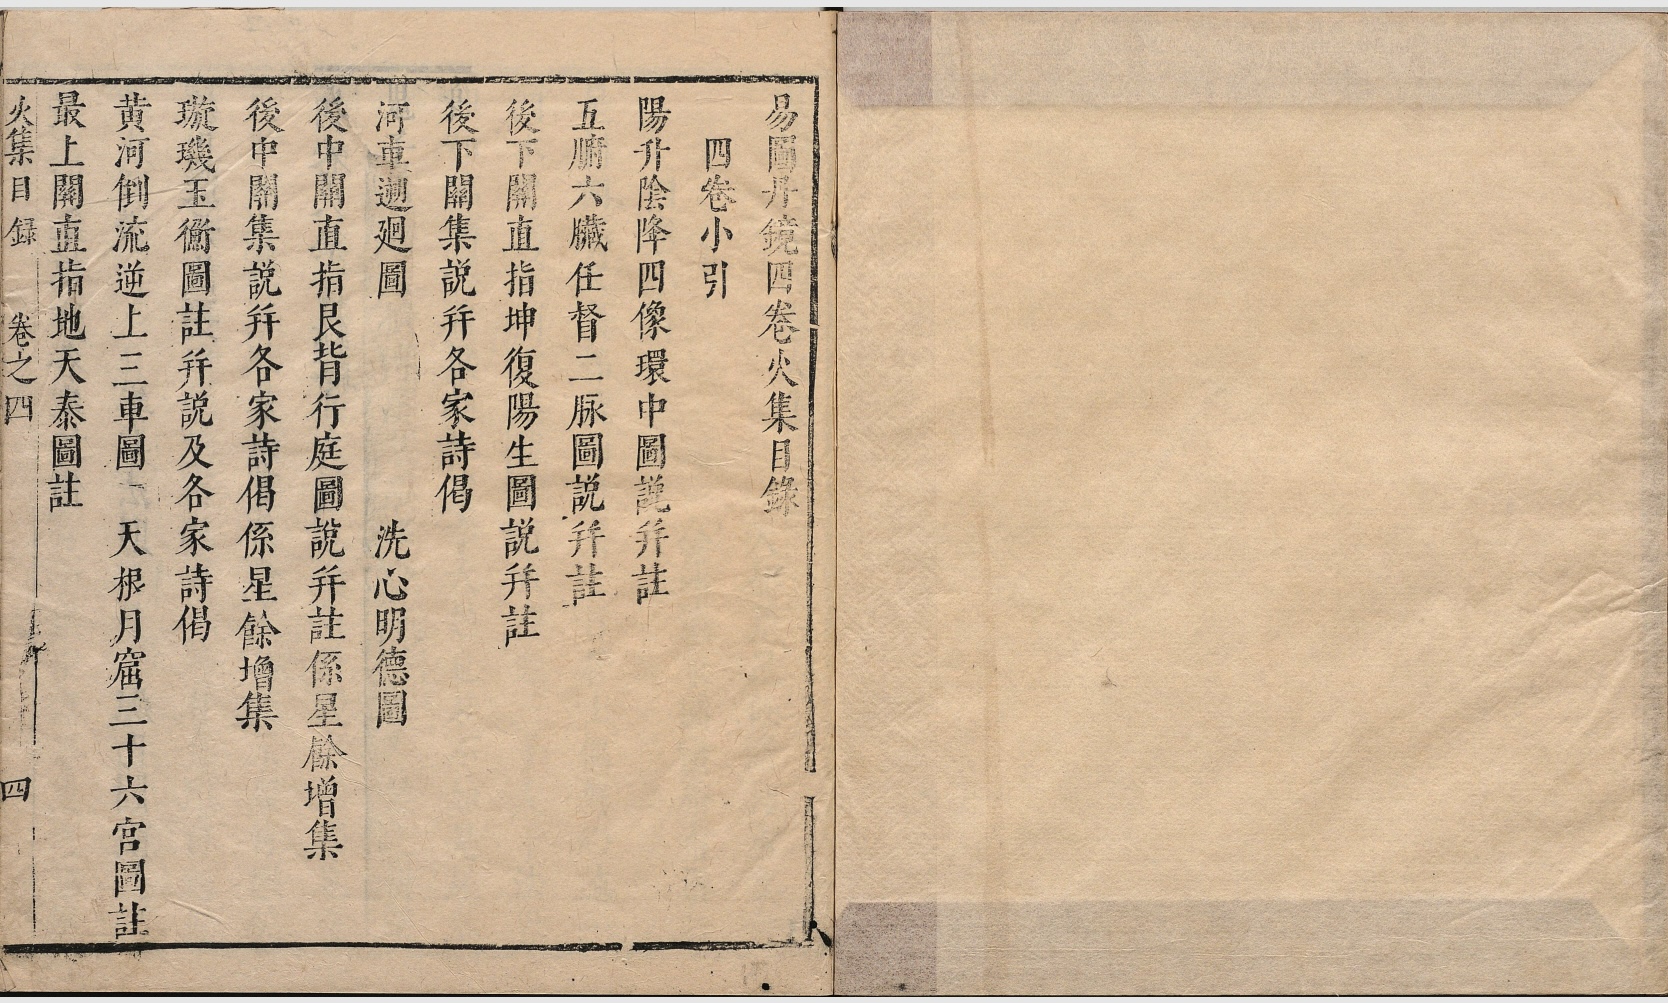 易圖丹鏡四卷火集目錄
四卷小引
陽升陰降四像環中圖説并註
五腑六臟任督二脉圖説并註
後下關直指坤復陽生圖説并註
後下關集説并各家詩偈
河車逥廻圖　洗心明德圖
後中關直指艮背行庭圖説并註係星餘增集
後中關集説并各家詩偈係星餘增集
璇璣玉衡圖註并説及各家詩偈
黄河倒流逆上三車圖　天根月窟三十六宮圖註
最上關直指地天泰圖註
火集目錄　卷之四　四